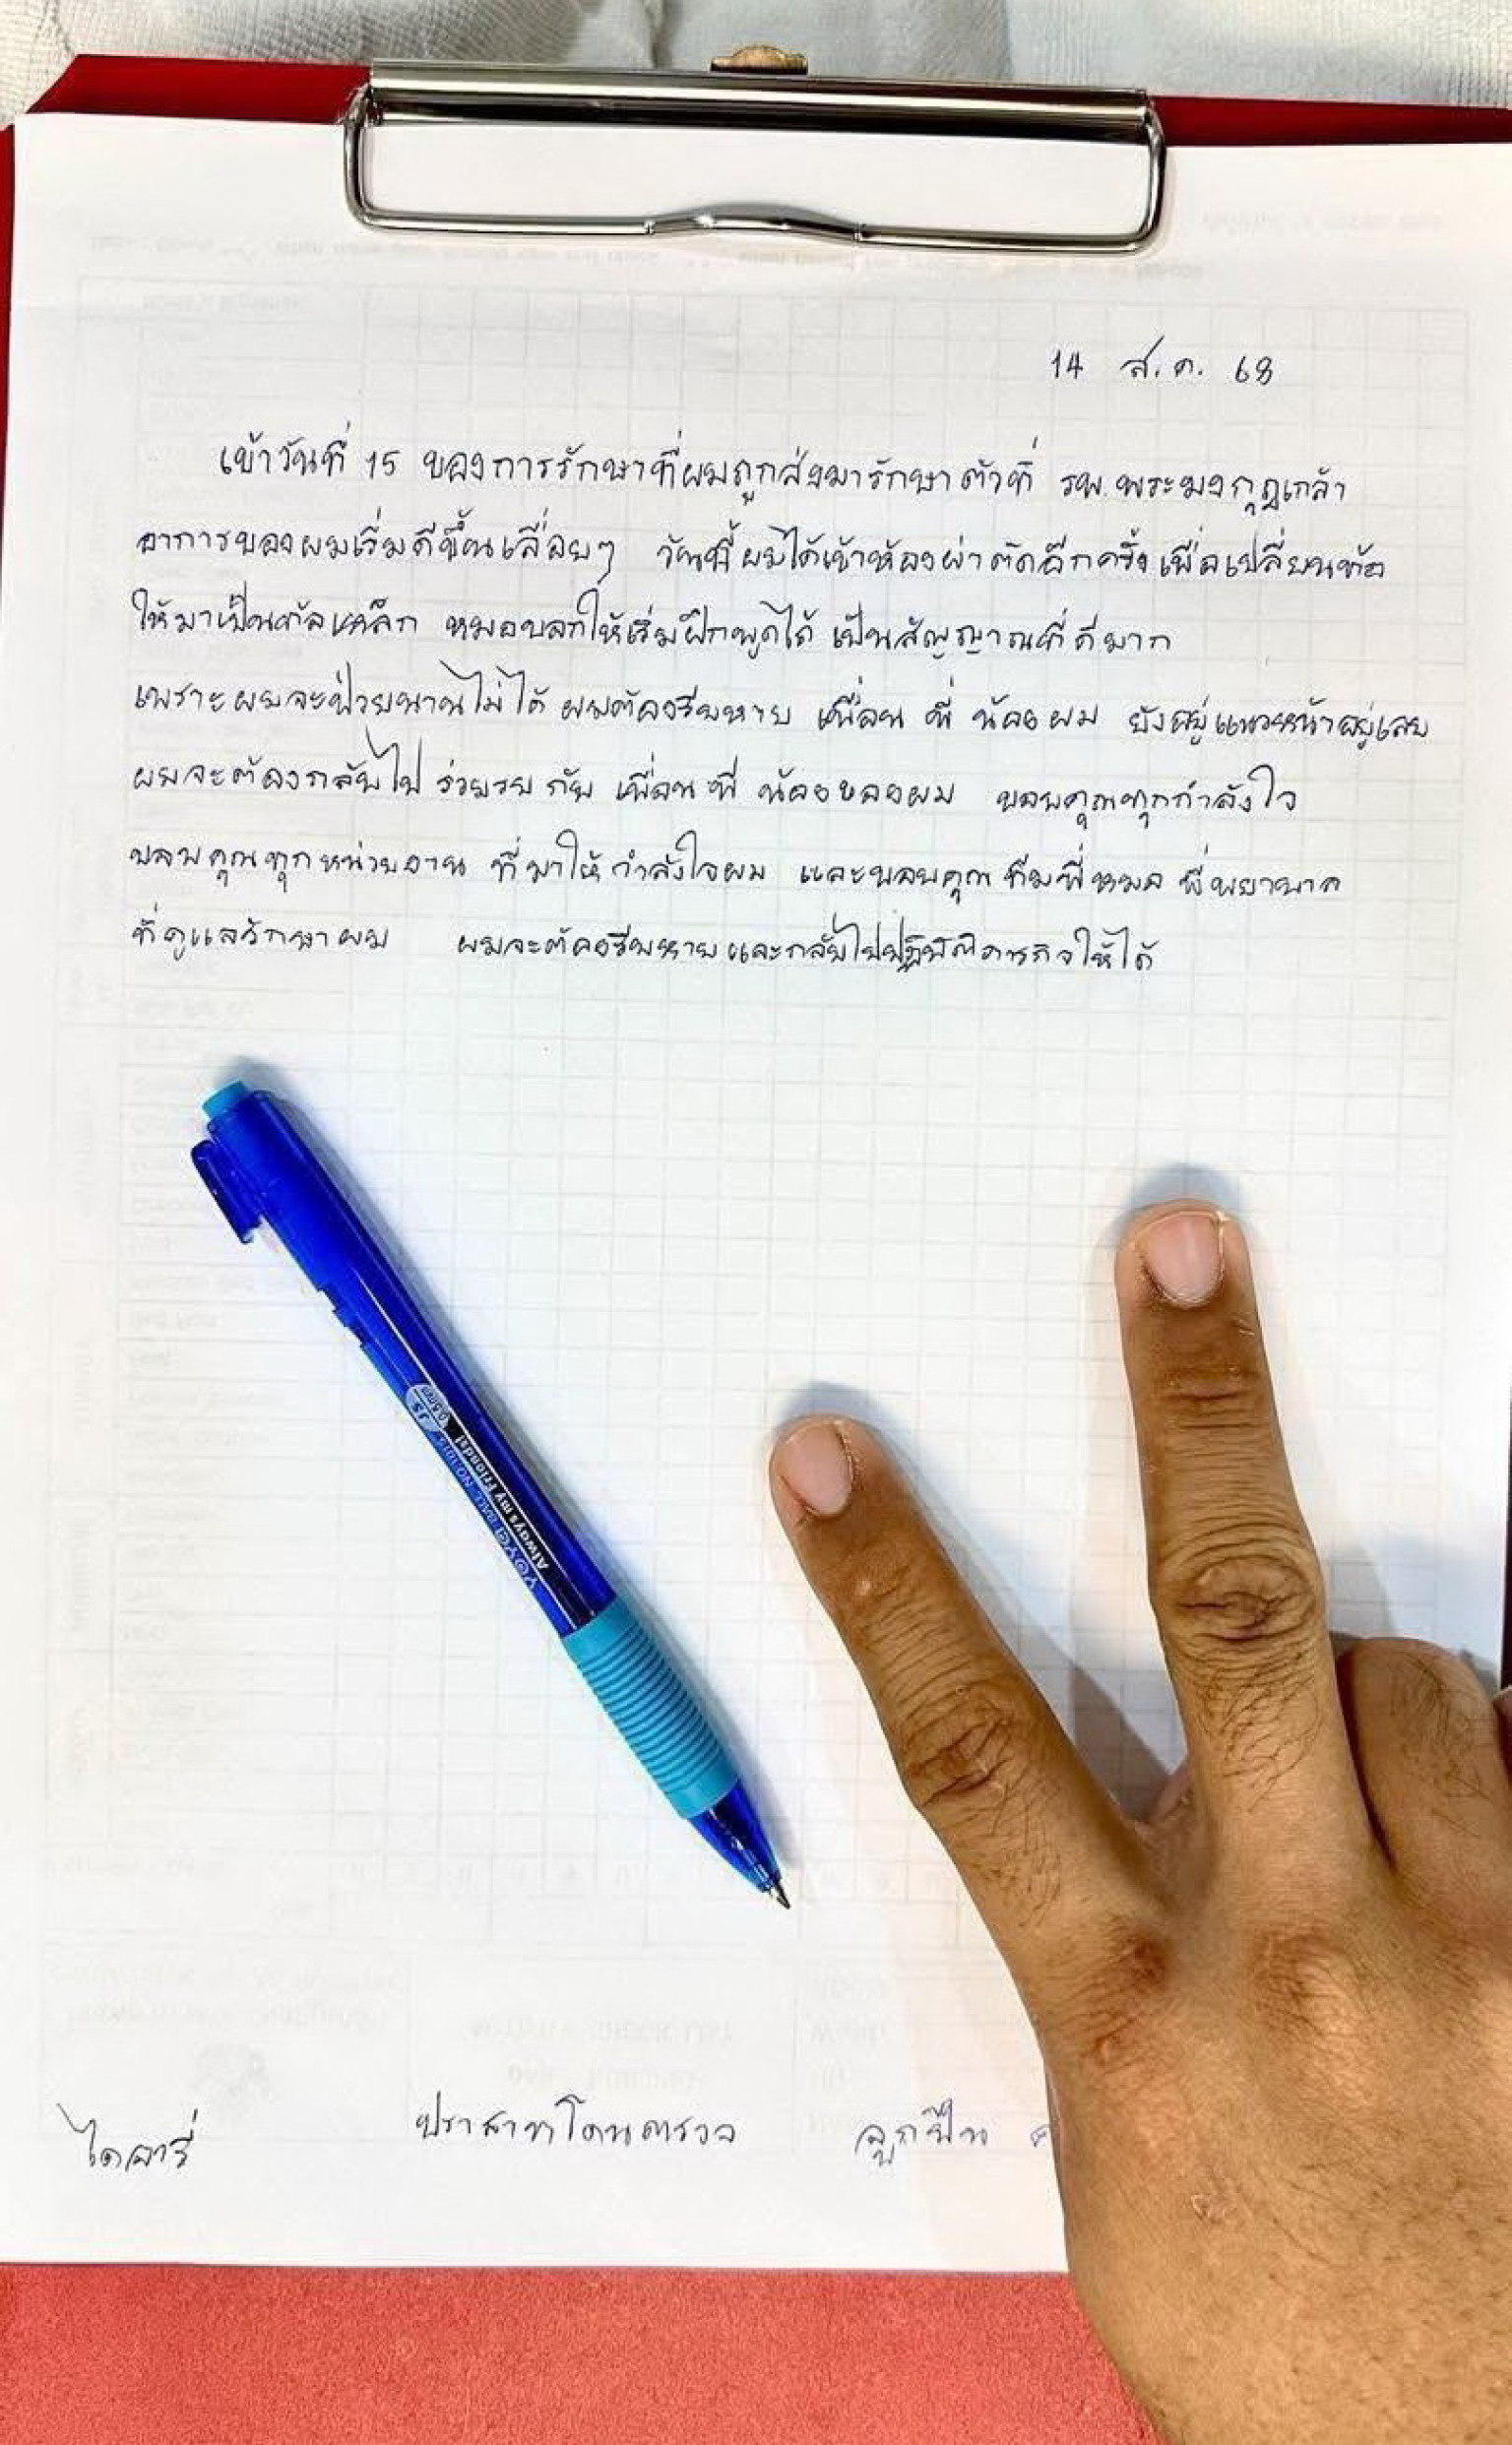 14 ส.ค. 68
เข้าวันที่ 15 ของการรักษาที่ผมถูกส่งมารักษาตัวที่ รพ.พระมงกุฎเกล้า
อาการของผมเริ่มดีขึ้นเลื่อยๆ วันนี้ผมได้เข้าห้องผ่าตัดอีกครั้งเพื่อเปลี่ยนท่อ
ให้มาเป็นท่อเหล็ก หมอบอกให้เริ่มฝึกพูดได้ เป็นสัญญาณที่ดีมาก
เพราะผมจะป่วยนานไม่ได้ ผมต้องรีบหาย เพื่อน พี่ น้อง ผม ยังอยู่แนวหน้าอยู่เลย
ผมจะต้องกลับไป ร่วมรบ กับ เพื่อน พี่ น้องของผม ขอบคุณทุกกำลังใจ
ขอบคุณทุกหน่วยงาน ที่มาให้กำลังใจผม และขอบคุณ ทีมพี่หมอ พี่พยาบาล
ที่ดูแลรักษาผม ผมจะต้องรีบหายและกลับไปปฏิบัติภารกิจให้ได้
YOYA BALL NO.
Always my Friends!
0.5mm
ไดอารี่ ปราสาทโดนตรวล ลูกปืน